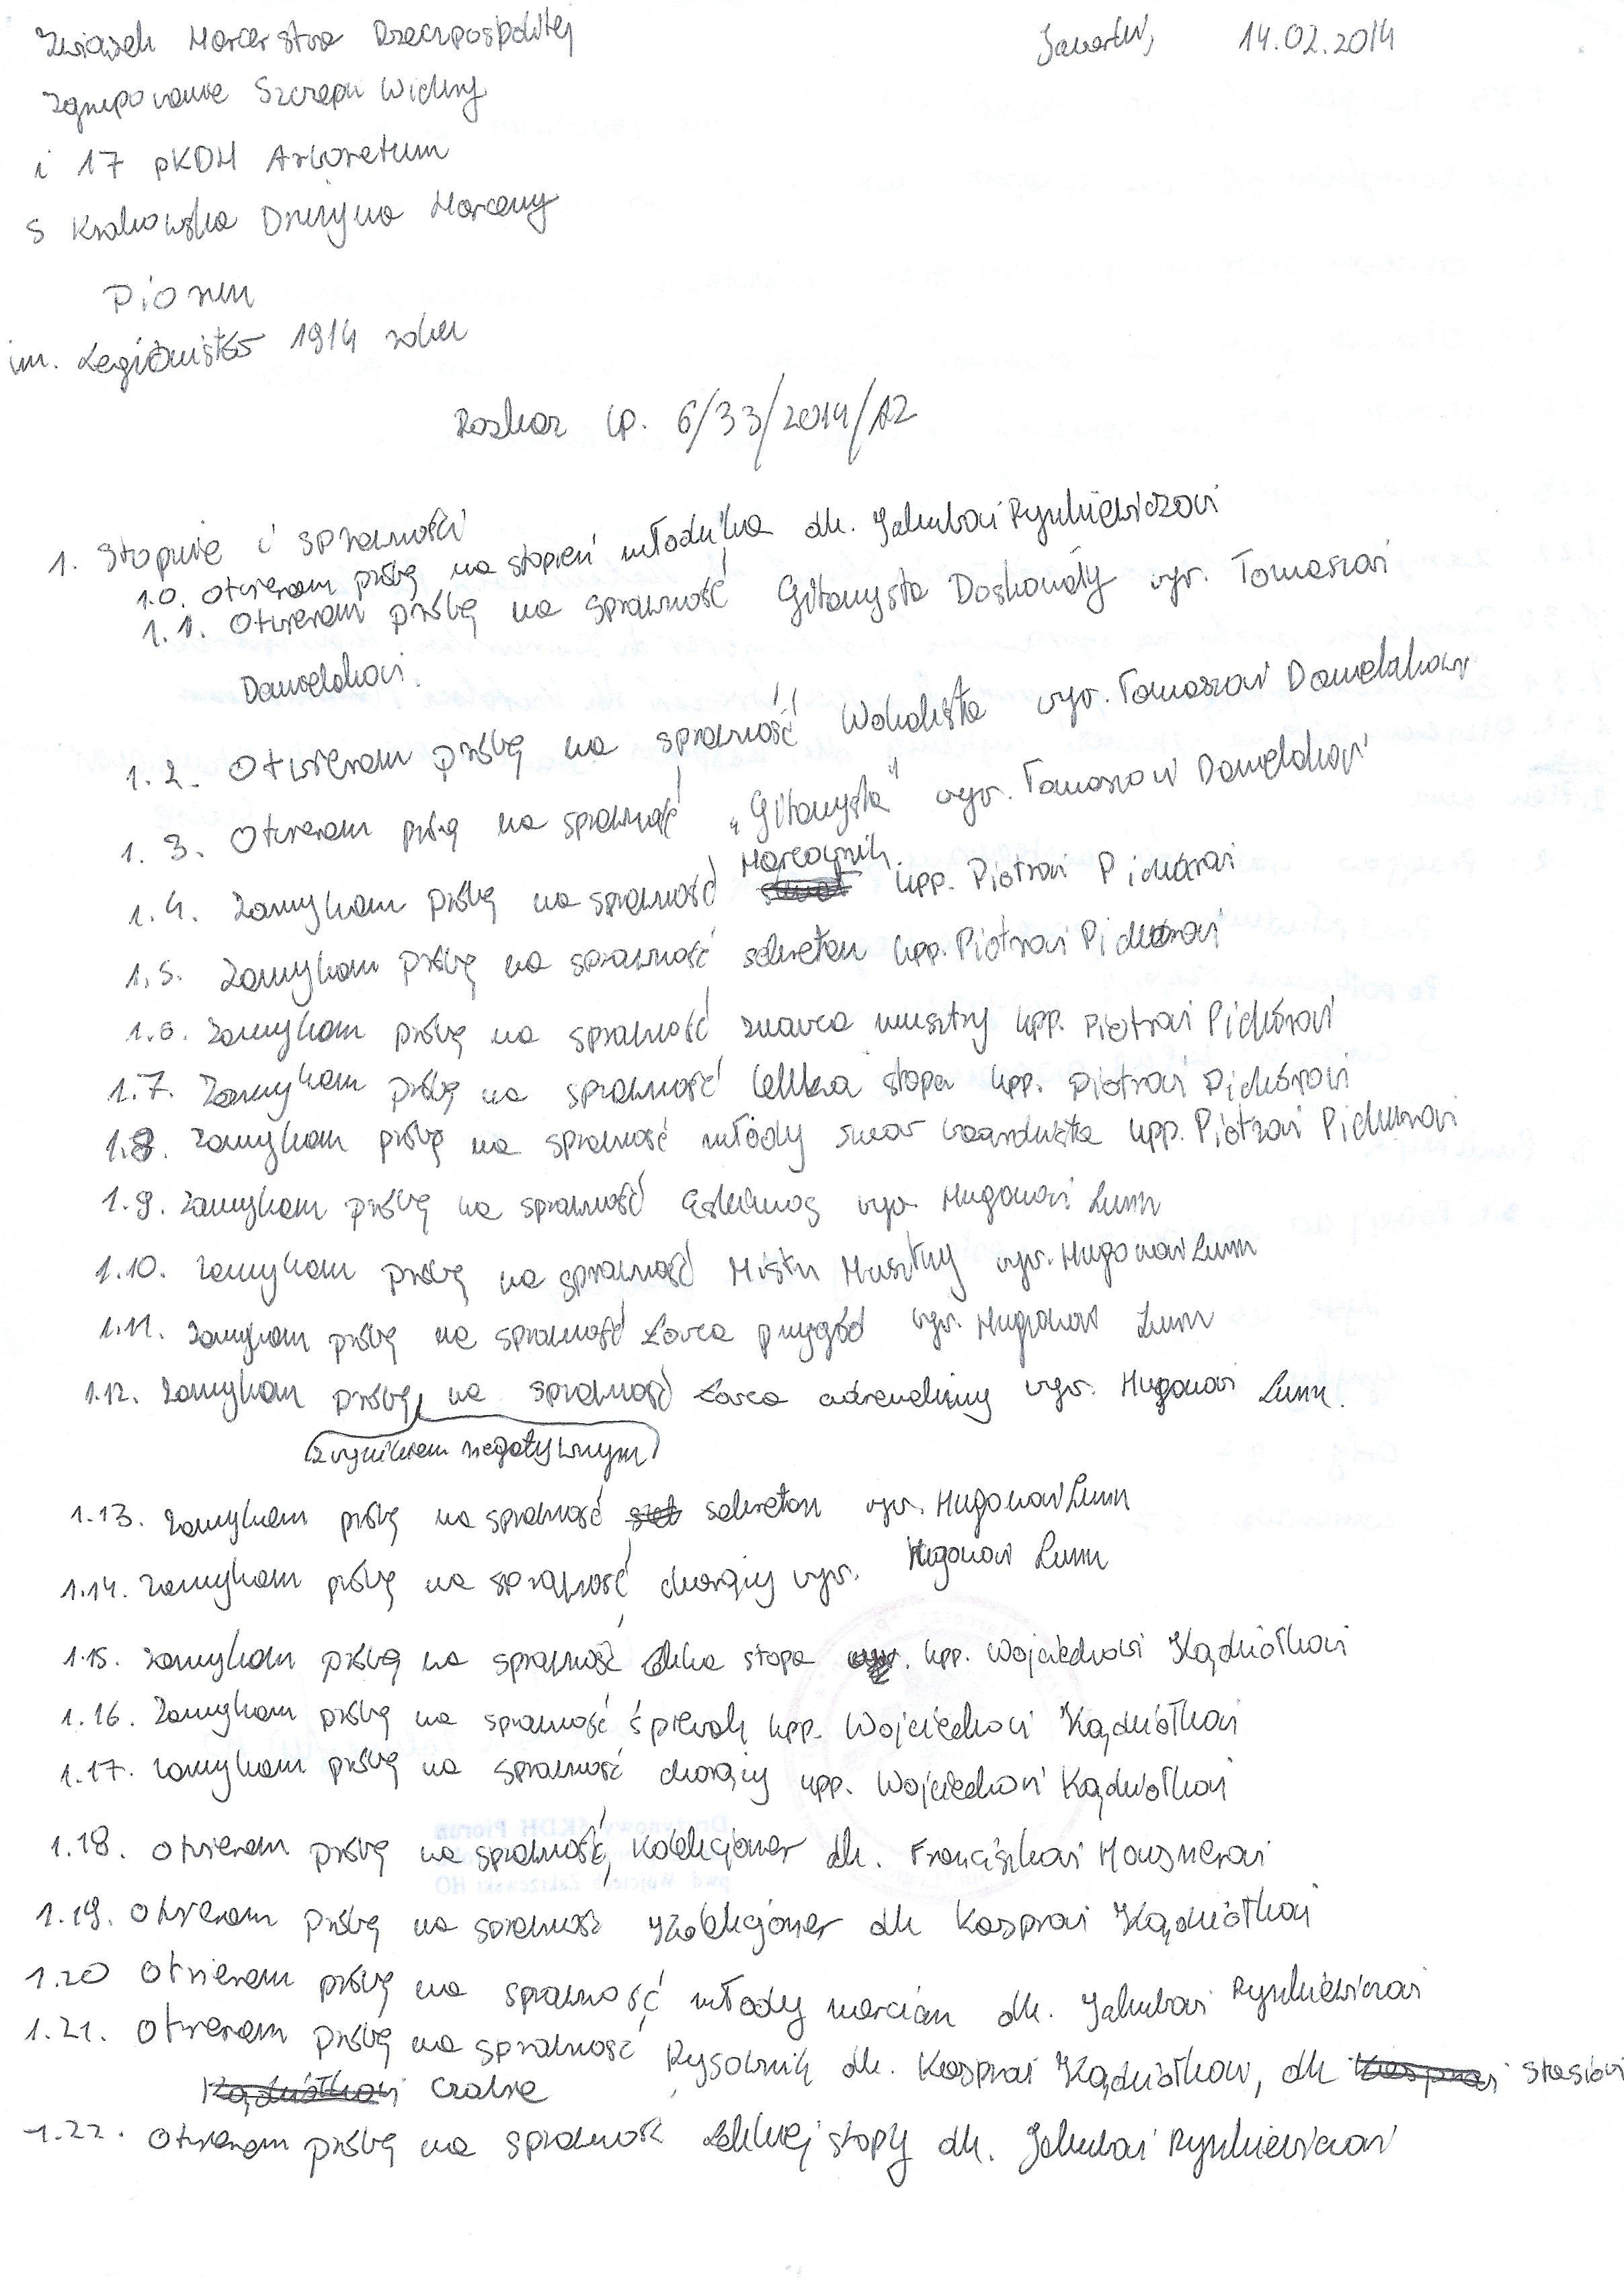 Związek Harcerstwa Rzeczpospolitej
Jaworki, 14.02.2014
Zgrupowanie Szczepu Wichry
i 17 pKDH Arboretum
5 Krakowska Drużyna Harcerzy
Piorun
im. Legionistów 1914 roku
Rozkaz lp. 6/33/2014/AZ
1. Stopnie i sprawności
1.0. Otwieram próbę na stopień młodzika dh. Jakubowi Rynkiewiczowi
1.1. Otwieram próbę na sprawność Gitarzysta Doskonały wyw. Tomaszowi
Danielakowi.
1.2. Otwieram próbę na sprawność Wokalista wyw. Tomaszowi Danielakowi
1.3. Otwieram próbę na sprawność „Gitarzysta" wyw. Tomaszowi Danielakowi
1.4. Zamykam próbę na sprawność Harcownik. upp. Piotrowi Pichórowi
1.5. Zamykam próbę na sprawność sekretarz upp. Piotrowi Pichórowi
1.6. Zamykam próbę na sprawność znawca musztry upp. Piotrowi Pichórowi
1.7. Zamykam próbę na sprawność lekka stopa upp. Piotrowi Pichórowi
1.8. Zamykam próbę na sprawność młody upp. Piotrowi Pichórowi
1.9. Zamykam próbę na sprawność Eskimos wyw. Hugonowi Lunn
1.10. Zamykam próbę na sprawność Mistrz Musztry wyw. Hugonowi Lunn
1.11. Zamykam próbę na sprawność Łowca przygód wyw. Hugonowi Lunn
1.12. Zamykam próbę na sprawność Łowca adrenaliny wyw. Hugonowi Lunn.
z wynikiem negatywnym
1.13. Zamykam próbę na sprawność sekretarz wyw. Hugonowi Lunn
1.14. Zamykam próbę na sprawność chorąży wyw. Hugonowi Lunn
1.15. Zamykam próbę na sprawność lekka stopa upp. Wojciechowi Kądziołkowi
1.16. Zamykam próbę na sprawność śpiewak upp. Wojciechowi Kądziołkowi
1.17. Zamykam próbę na sprawność chorąży upp. Wojciechowi Kądziołkowi
1.18. Otwieram próbę na sprawność Kolekcjoner dh. Franciszkowi Hausnerowi
1.19. Otwieram próbę na sprawność Kolekcjoner dh Kasprowi Kądziołkowi
1.20 Otwieram próbę na sprawność młody narciarz dh. Jakubowi Rynkiewiczowi
1.21. Otwieram próbę na sprawność Rysownik dh. Kasprowi Kądziołkowi, dh Stasiowi
Czaivie
1.22. Otwieram próbę na sprawność Lekkiej stopy dh. Jakubowi Rynkiewiczowi